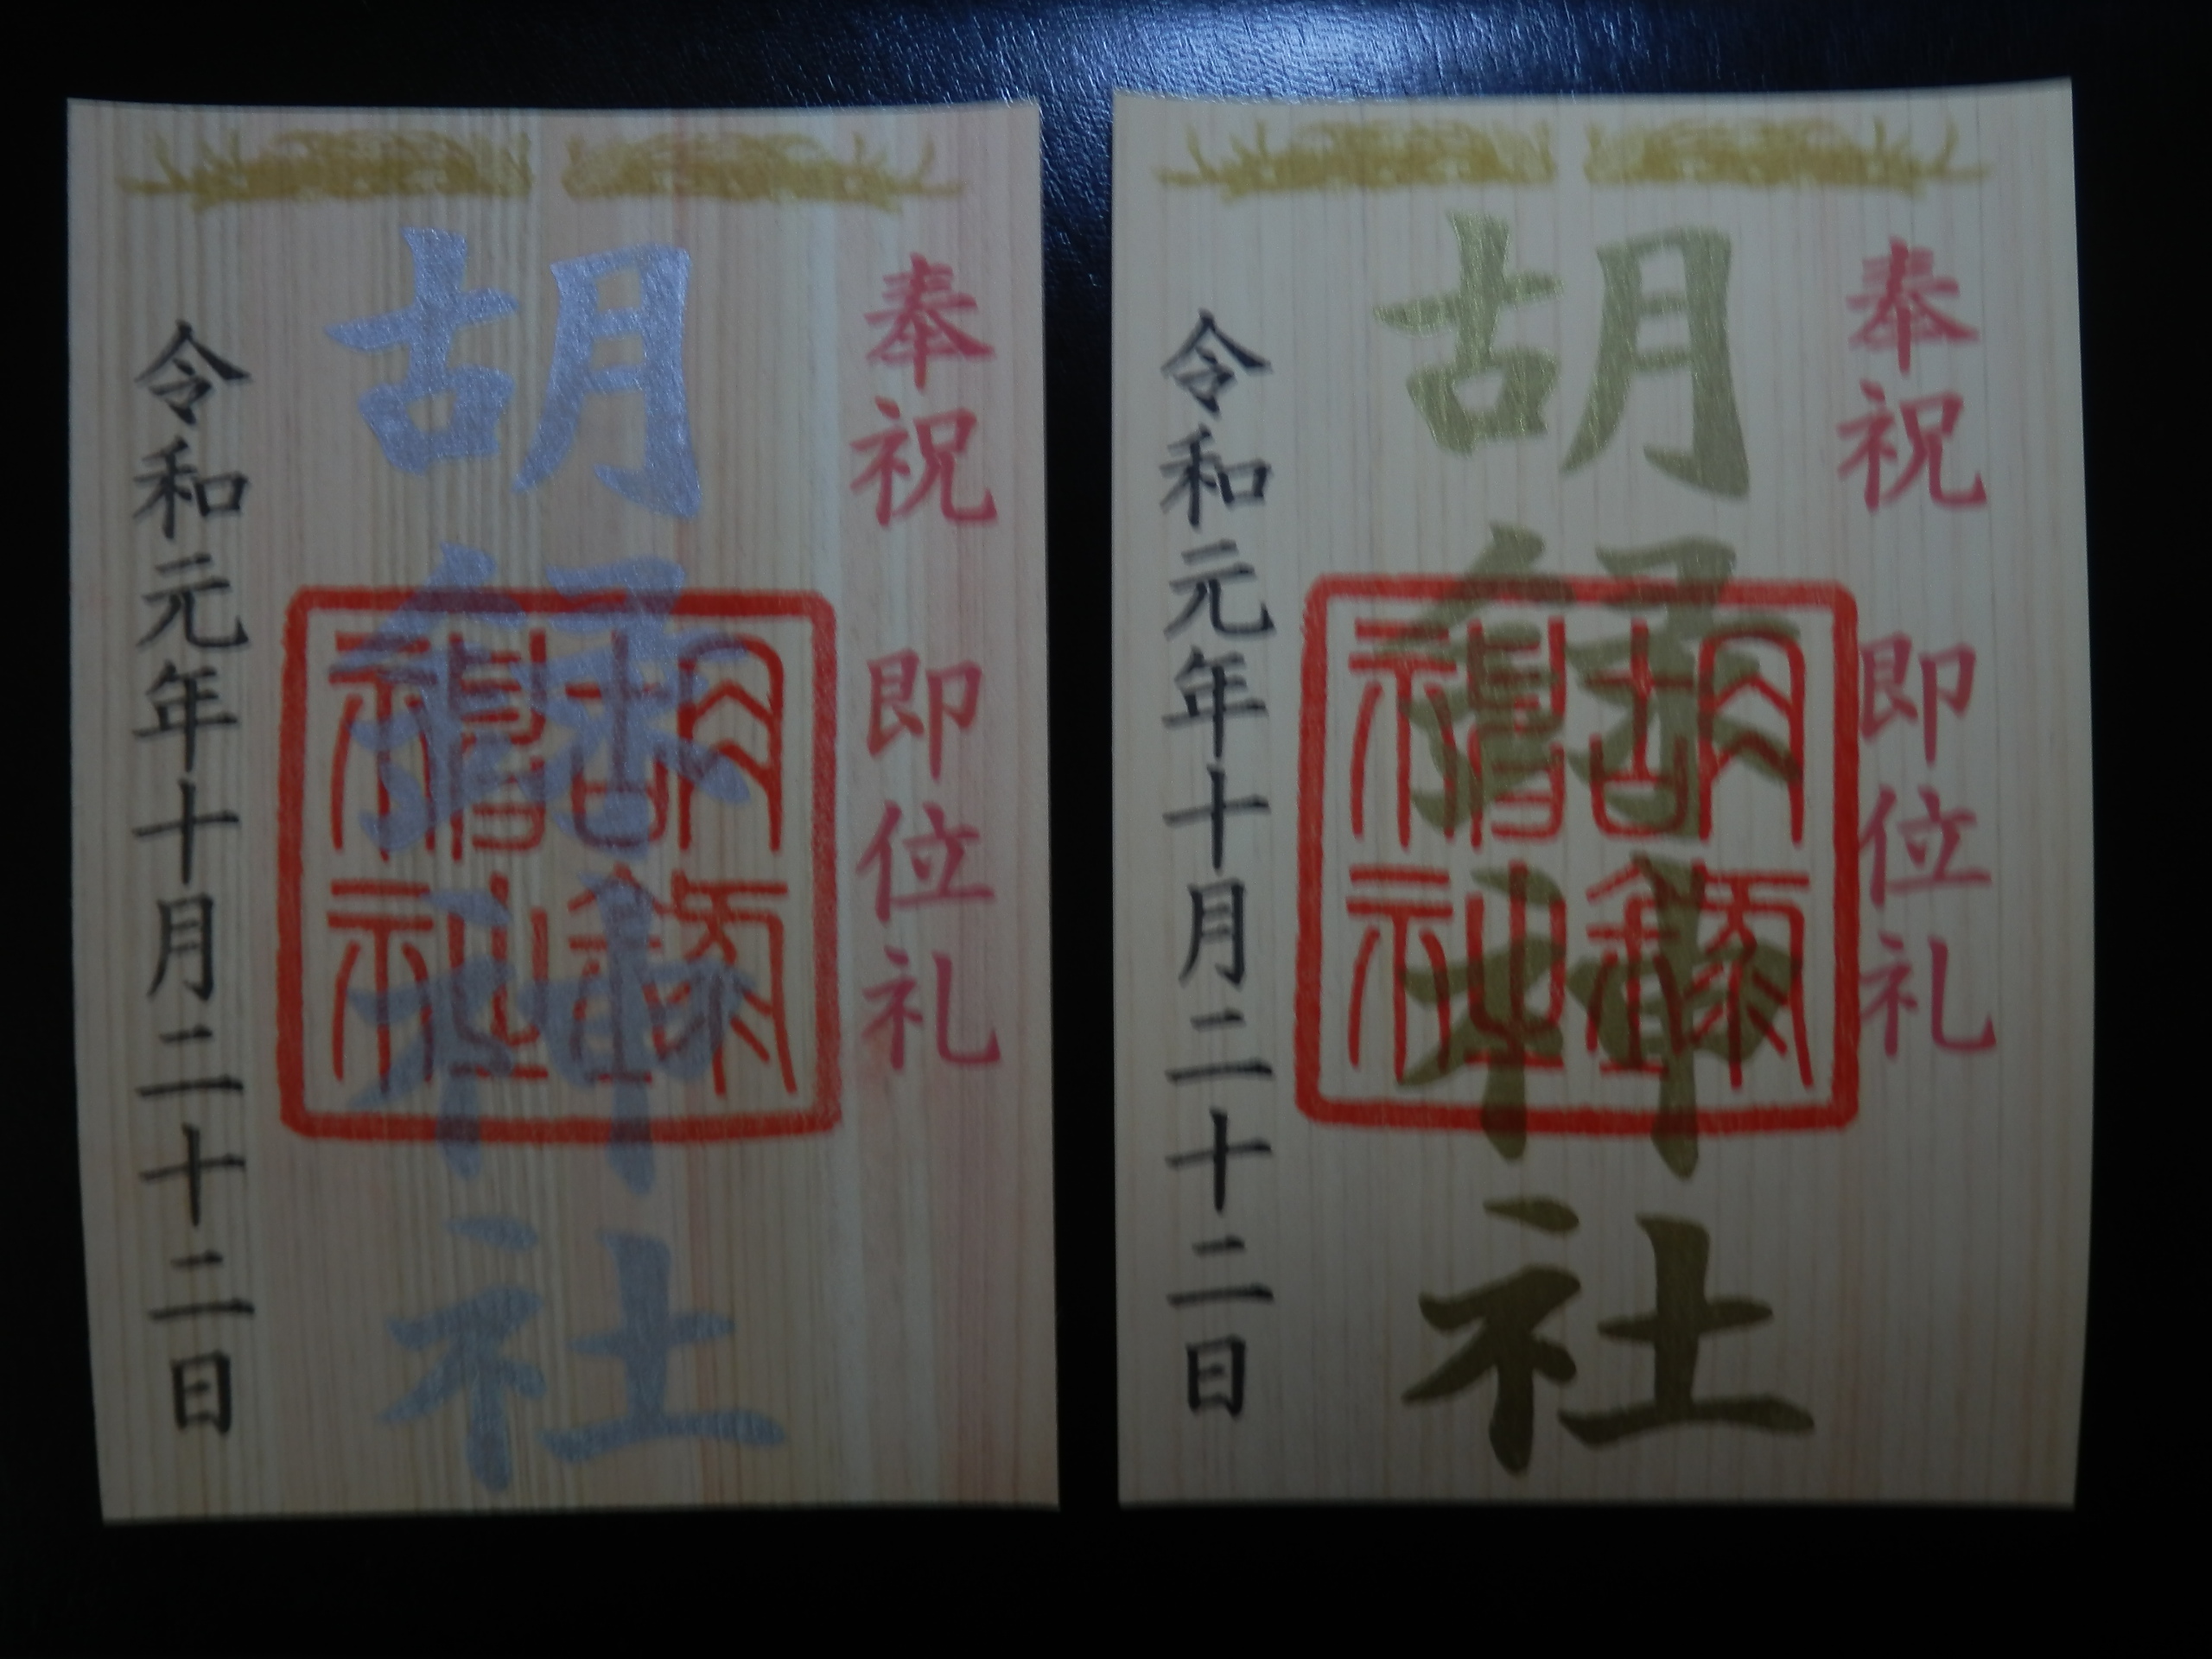 奉祝 即位礼
胡録神社
胡録
神社
令和元年十月二十二日
奉祝 即位礼
胡録神社
胡録
神社
令和元年十月二十二日